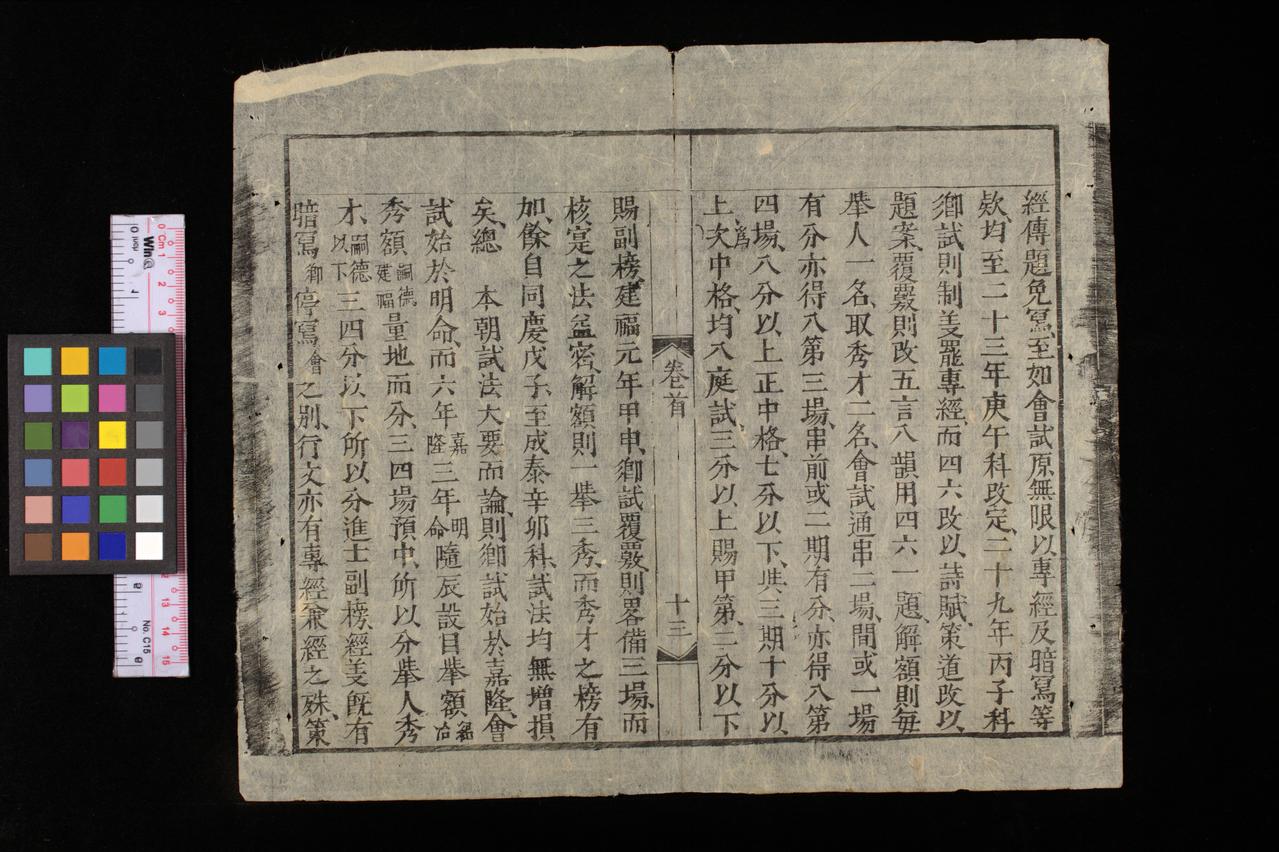 經傳題免寫、至如會試原無限以專經及暗寫等
欵、均至二十三年庚午科改定、二十九年丙子科
鄉試則制義罷專經、而四六改以詩賦、策道改以
題案、覆覈則改五言八韻用四六一題、解額則每
舉人一名、取秀才二名、會試通串二場、間或一場
有分亦得入第三場、串前或二期有分、亦得入第
四場、八分以上正中格、七分以下、共三期十分以
上、爲次中格、均入庭試、三分以上賜甲第、二分以下
卷首
十三
賜副榜、建福元年甲申、鄉試覆覈則畧備三場、而
核寔之法益密、解額則一舉三秀、而秀才之榜有
加、餘自同慶戊子、至成泰辛卯科、試法均無增損
矣、總 本朝試法大要而論、則鄉試始於嘉隆、會
試始於明命、而六年嘉隆三年明命隨辰設目舉額紹治
秀額嗣德建福量地而分、三四場預中、所以分舉人秀
才、嗣德以下三四分以下所以分進士副榜、經義既有
暗寫鄉停寫會之別、行文亦有專經兼經之殊、策